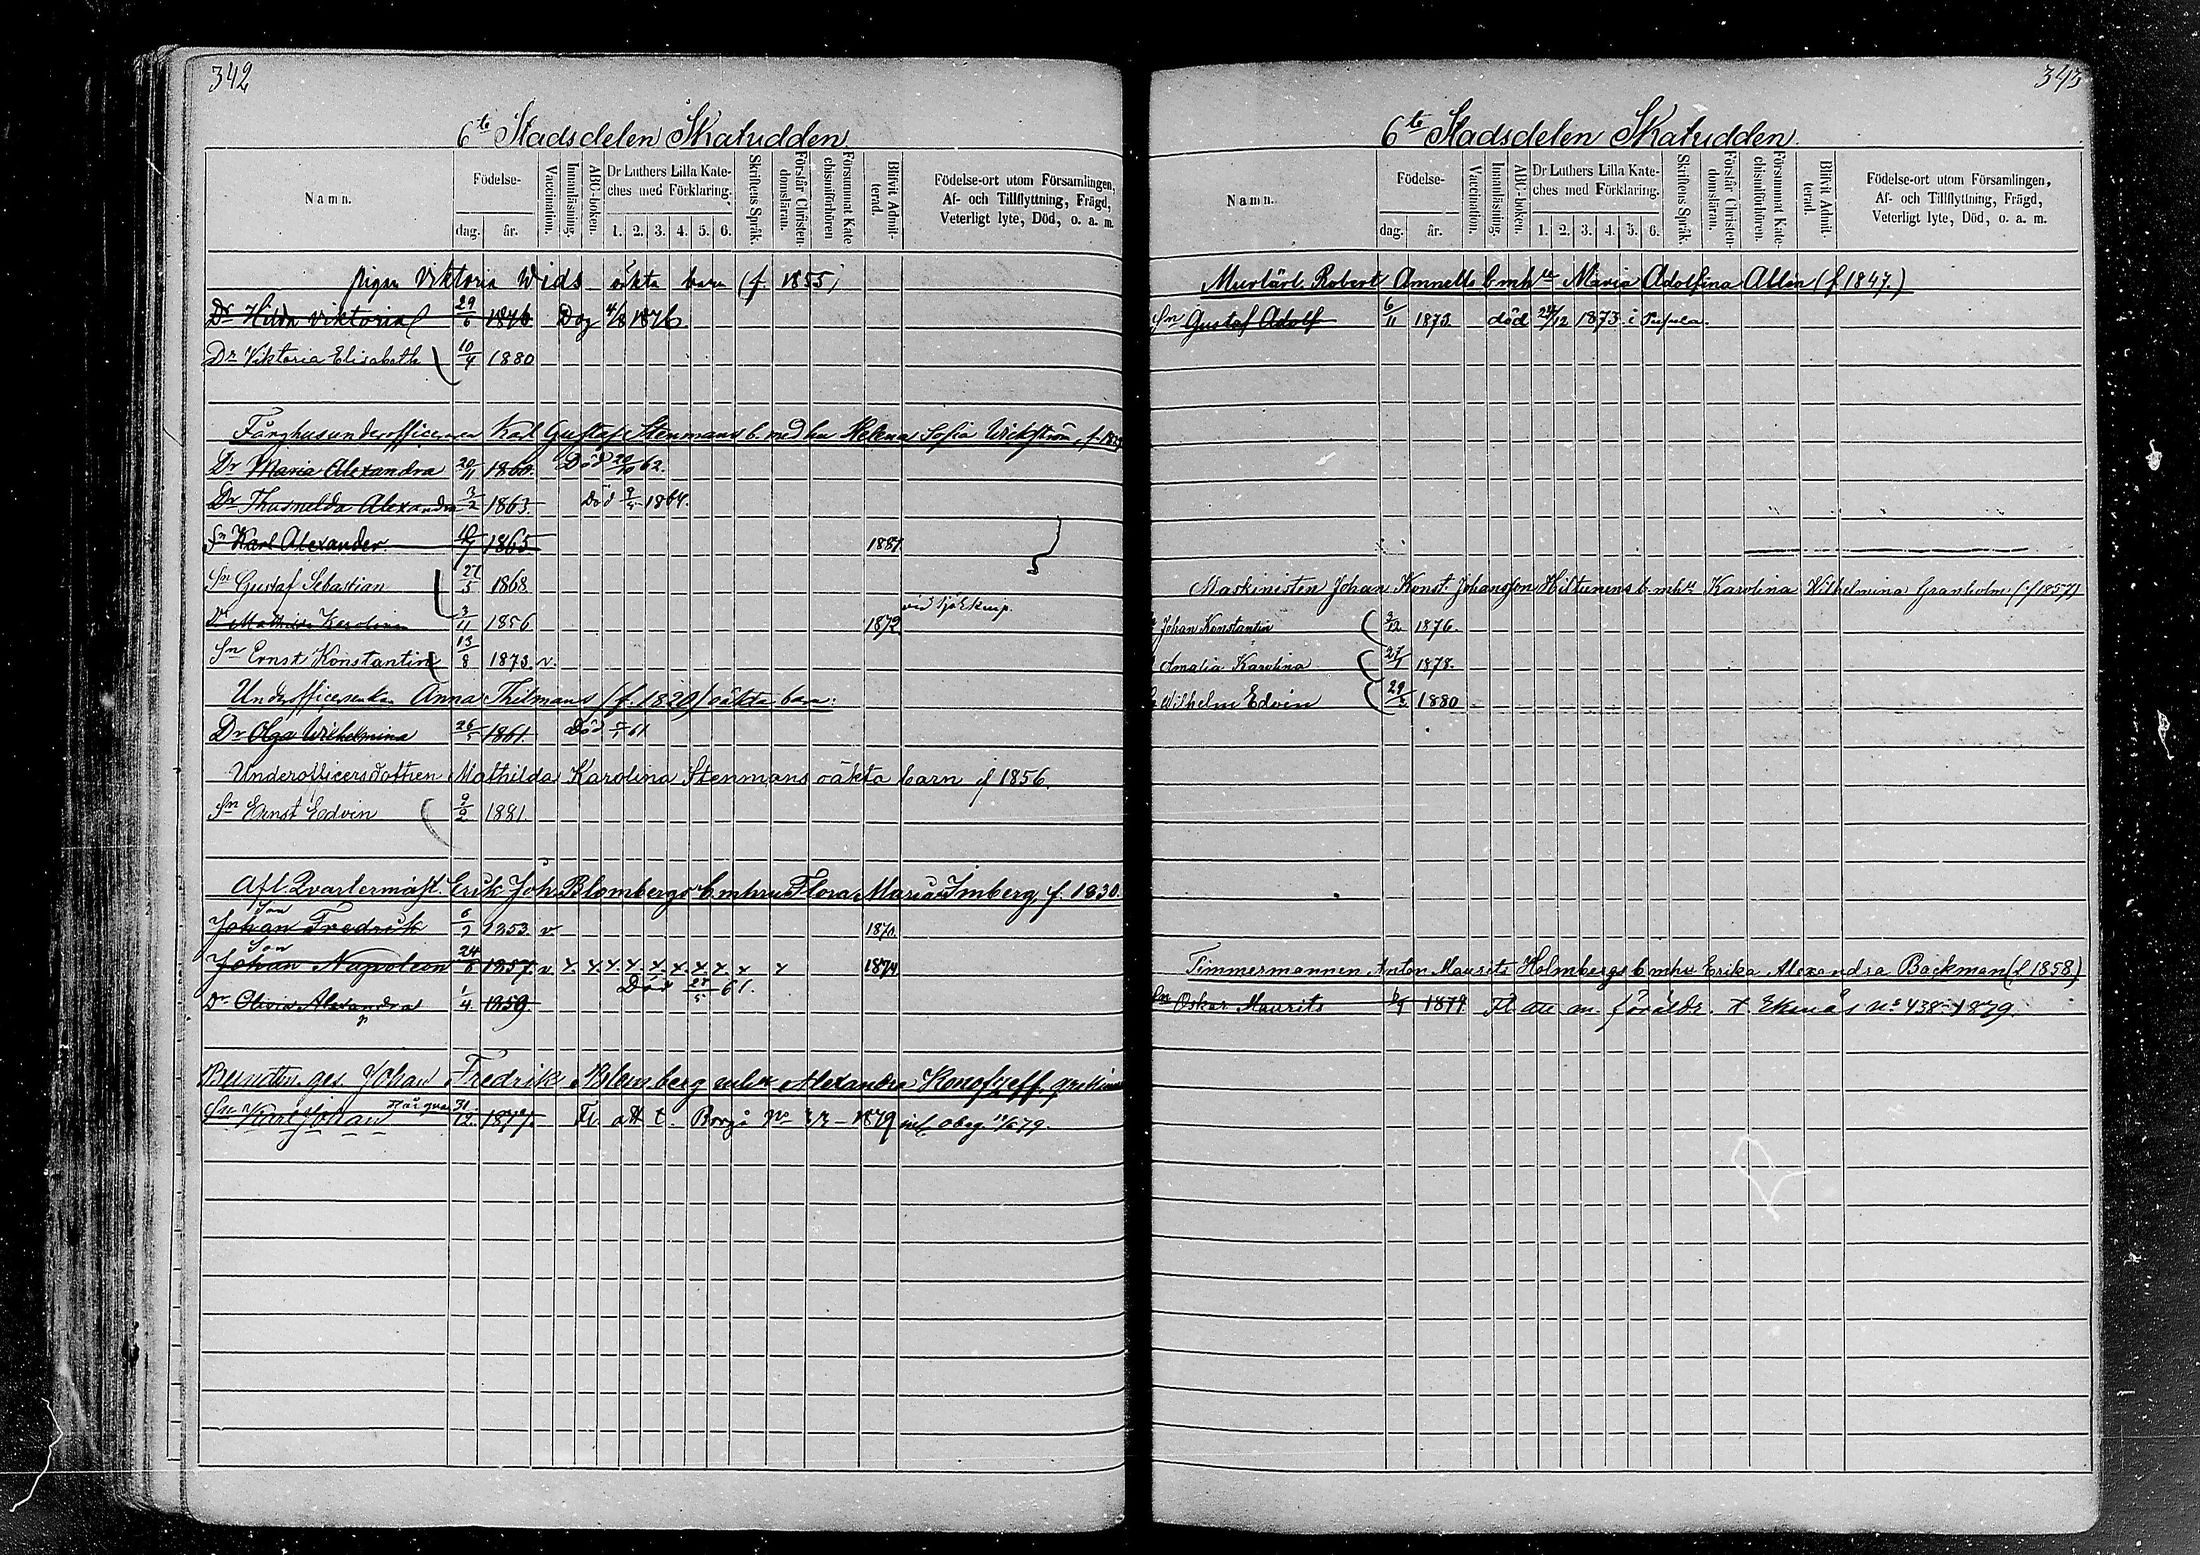 342
6te Stadsdelen Skatudden
Namn. Födelse- dag. år. Vaccination. Innanläsning. ABC-boken. Dr Luthers Lilla Kate-ches med Förklaring. 1. 2. 3. 4. 5. 6. Skriftens Språk. Förstår Christen-domsläran. Försummat Kate-chismiförhören Blifvit Admit-terad. Födelse-ort utom Församlingen, Af- och Tillflyttning, Frägd, Veterligt lyte, Död, o. a. m.
pigan Viktoria Wids oäkta barn (f. 1855)
Dr Hilda Viktoria 29/6 1876 Dog 4/8 1876
Dr Viktoria Elisabeth 10/4 1880
Fånghusunderofficeraren Karl Gustaf Stenmans b. med hu Helena Sofia Wickström, f.
Dr Maria Alexandra 20/11 1860. Död 20/10 62.
Dr Thusnelda Alexandra 3/2 1863. Död 9/5 1864.
Sn Karl Alexander 1865 1881.
Sn Gustaf Sebastian 27/5 1868.
Dr Mathilda Karolina 3/11 1856 1872.
Sn Ernst Konstantin 13/8 1873. v.
Underofficersenkan Anna Thilmans (f. 1820) oäkta barn:
Dr Olga Wilhelmina 26/5 1861. Död 61
Underofficersdottren Mathilda Karolina Stenmans oäkta barn f 1856.
Sn Ernst Edvin 9/2 1881.
Afl. Qvartermäst. Erik Joh. Blombergs b mhu Flora Maria Imberg, f. 1830.
Son
Johan Fredrik 6/2 1853. v. 1870.
Son
Johan Napoleon 24/8 1857 v x x x x x x x x x 1874
Dr Olivia Alexandra 1/4 1859. Död 28/5 61.
ges. Johan Fredrik Blomberg mhu Alexandra
Sn Karl Johan 31/12 1877. Fl. att t. Borgå No 1879
343
6te Stadsdelen Skatudden.
Namn. Födelse- dag. år. Vaccination. Innanläsning. ABC-boken. Dr Luthers Lilla Kate-ches med Förklaring. 1. 2. 3. 4. 5. 6. Skriftens Språk. Förstår Christen-domsläran. Försummat Kate-chismiförhören. Blifvit Admit-terad. Födelse-ort utom Församlingen, Af- och Tillflyttning, Frägd, Veterligt lyte, Död, o. a. m.
Murlärl. Robert Amnells b mhu Maria Adolfina Atlén (f 1847.)
Sn Gustaf Adolf 6/11 1873. död 29/12 1873. i
Maskinisten Johan Konst. Johansson Hiltunens b. mhu Karolina Wilhelmina Granholm (f 1857)
Johan Konstantin 1876.
Amalia Karolina 1878.
Wilhelm Edvin 29/3 1880
Timmermannen Anton Maurits Holmbergs b mhu Erika Alexandra Backman (f 1858)
Sn Oskar Maurits 1879. Fl. att m. föräldr. t. Ekenäs No 438 1879.